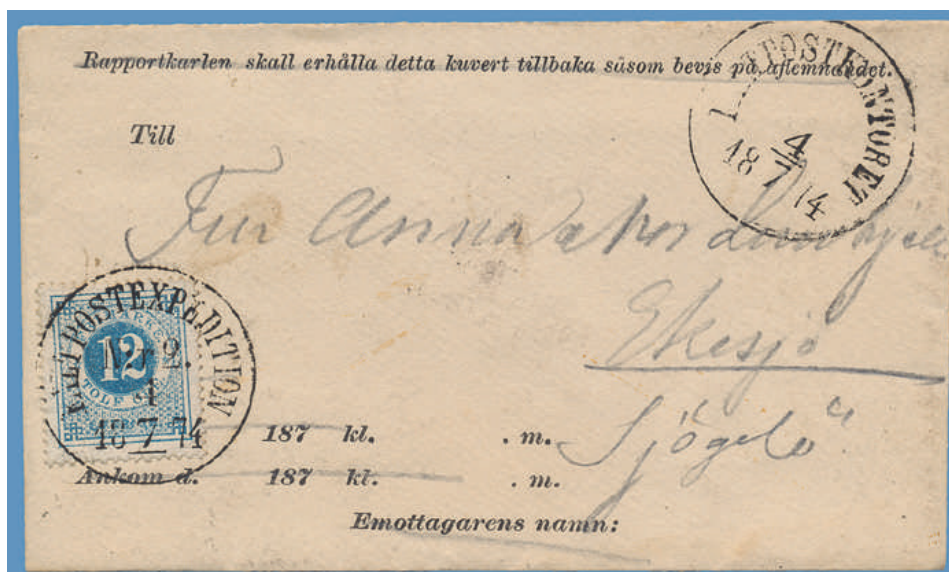 Rapportkarlen skall erhålla detta kuvert tillbaka såsom bevis på aflemnandet.
FÄLTPOSTKONTORET
1
4
18 7 74
Till
Fru Anna
Eksjö
Sjögelö
FÄLTPOSTEXPEDITION
N:r 2.
1
18 7 74
12
TOLF
187 kl. . m.
Ankom d. 187 kl. . m.
Emottagarens namn: